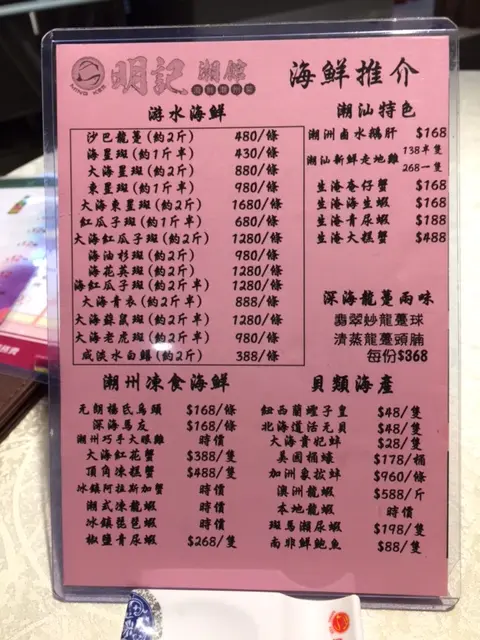 明記 潮館
海鮮推介
游水海鮮
沙巴龍躉(約2斤) 480/條
海星斑(約1斤半) 430/條
大海星斑(約2斤) 880/條
東星斑(約1斤半) 980/條
大海東星斑(約2斤) 1680/條
紅瓜子斑(約1斤半) 680/條
大海紅瓜子斑(約2斤) 1280/條
海油杉斑(約2斤) 980/條
海花英斑(約2斤) 1280/條
海紅瓜子斑(約2斤半) 1280/條
大海青衣(約2斤半) 888/條
大海蘇鼠斑(約2斤) 1280/條
大海老虎斑(約2斤) 980/條
咸淡水白鱔(約2斤) 388/條
潮汕特色
潮洲鹵水鵝肝 $168
潮汕新鮮走地雞 138半隻
268一隻
生淹奄仔蟹 $168
生淹海生蝦 $168
生淹青尿蝦 $188
生淹大糕蟹 $488
深海龍躉兩味
翡翠炒龍躉球
清蒸龍躉頭腩
每份$368
潮州凍食海鮮
元朗楊氏烏頭 $168/條
深海馬友 $168/條
潮州巧手大眼雞 時價
大海紅花蟹 $388/隻
頂角凍糕蟹 $488/隻
冰鎮阿拉斯加蟹 時價
潮式凍龍蝦 時價
冰鎮琵琶蝦 時價
椒鹽青尿蝦 $268/隻
貝類海產
紐西蘭蟶子皇 $48/隻
北海道活元貝 $48/隻
大海貴妃蚌 $28/隻
美國桶蠔 $178/桶
加洲象拔蚌 $960/條
澳洲龍蝦 $588/斤
本地龍蝦 時價
斑馬瀨尿蝦 $198/隻
南非鮮鮑魚 $88/隻